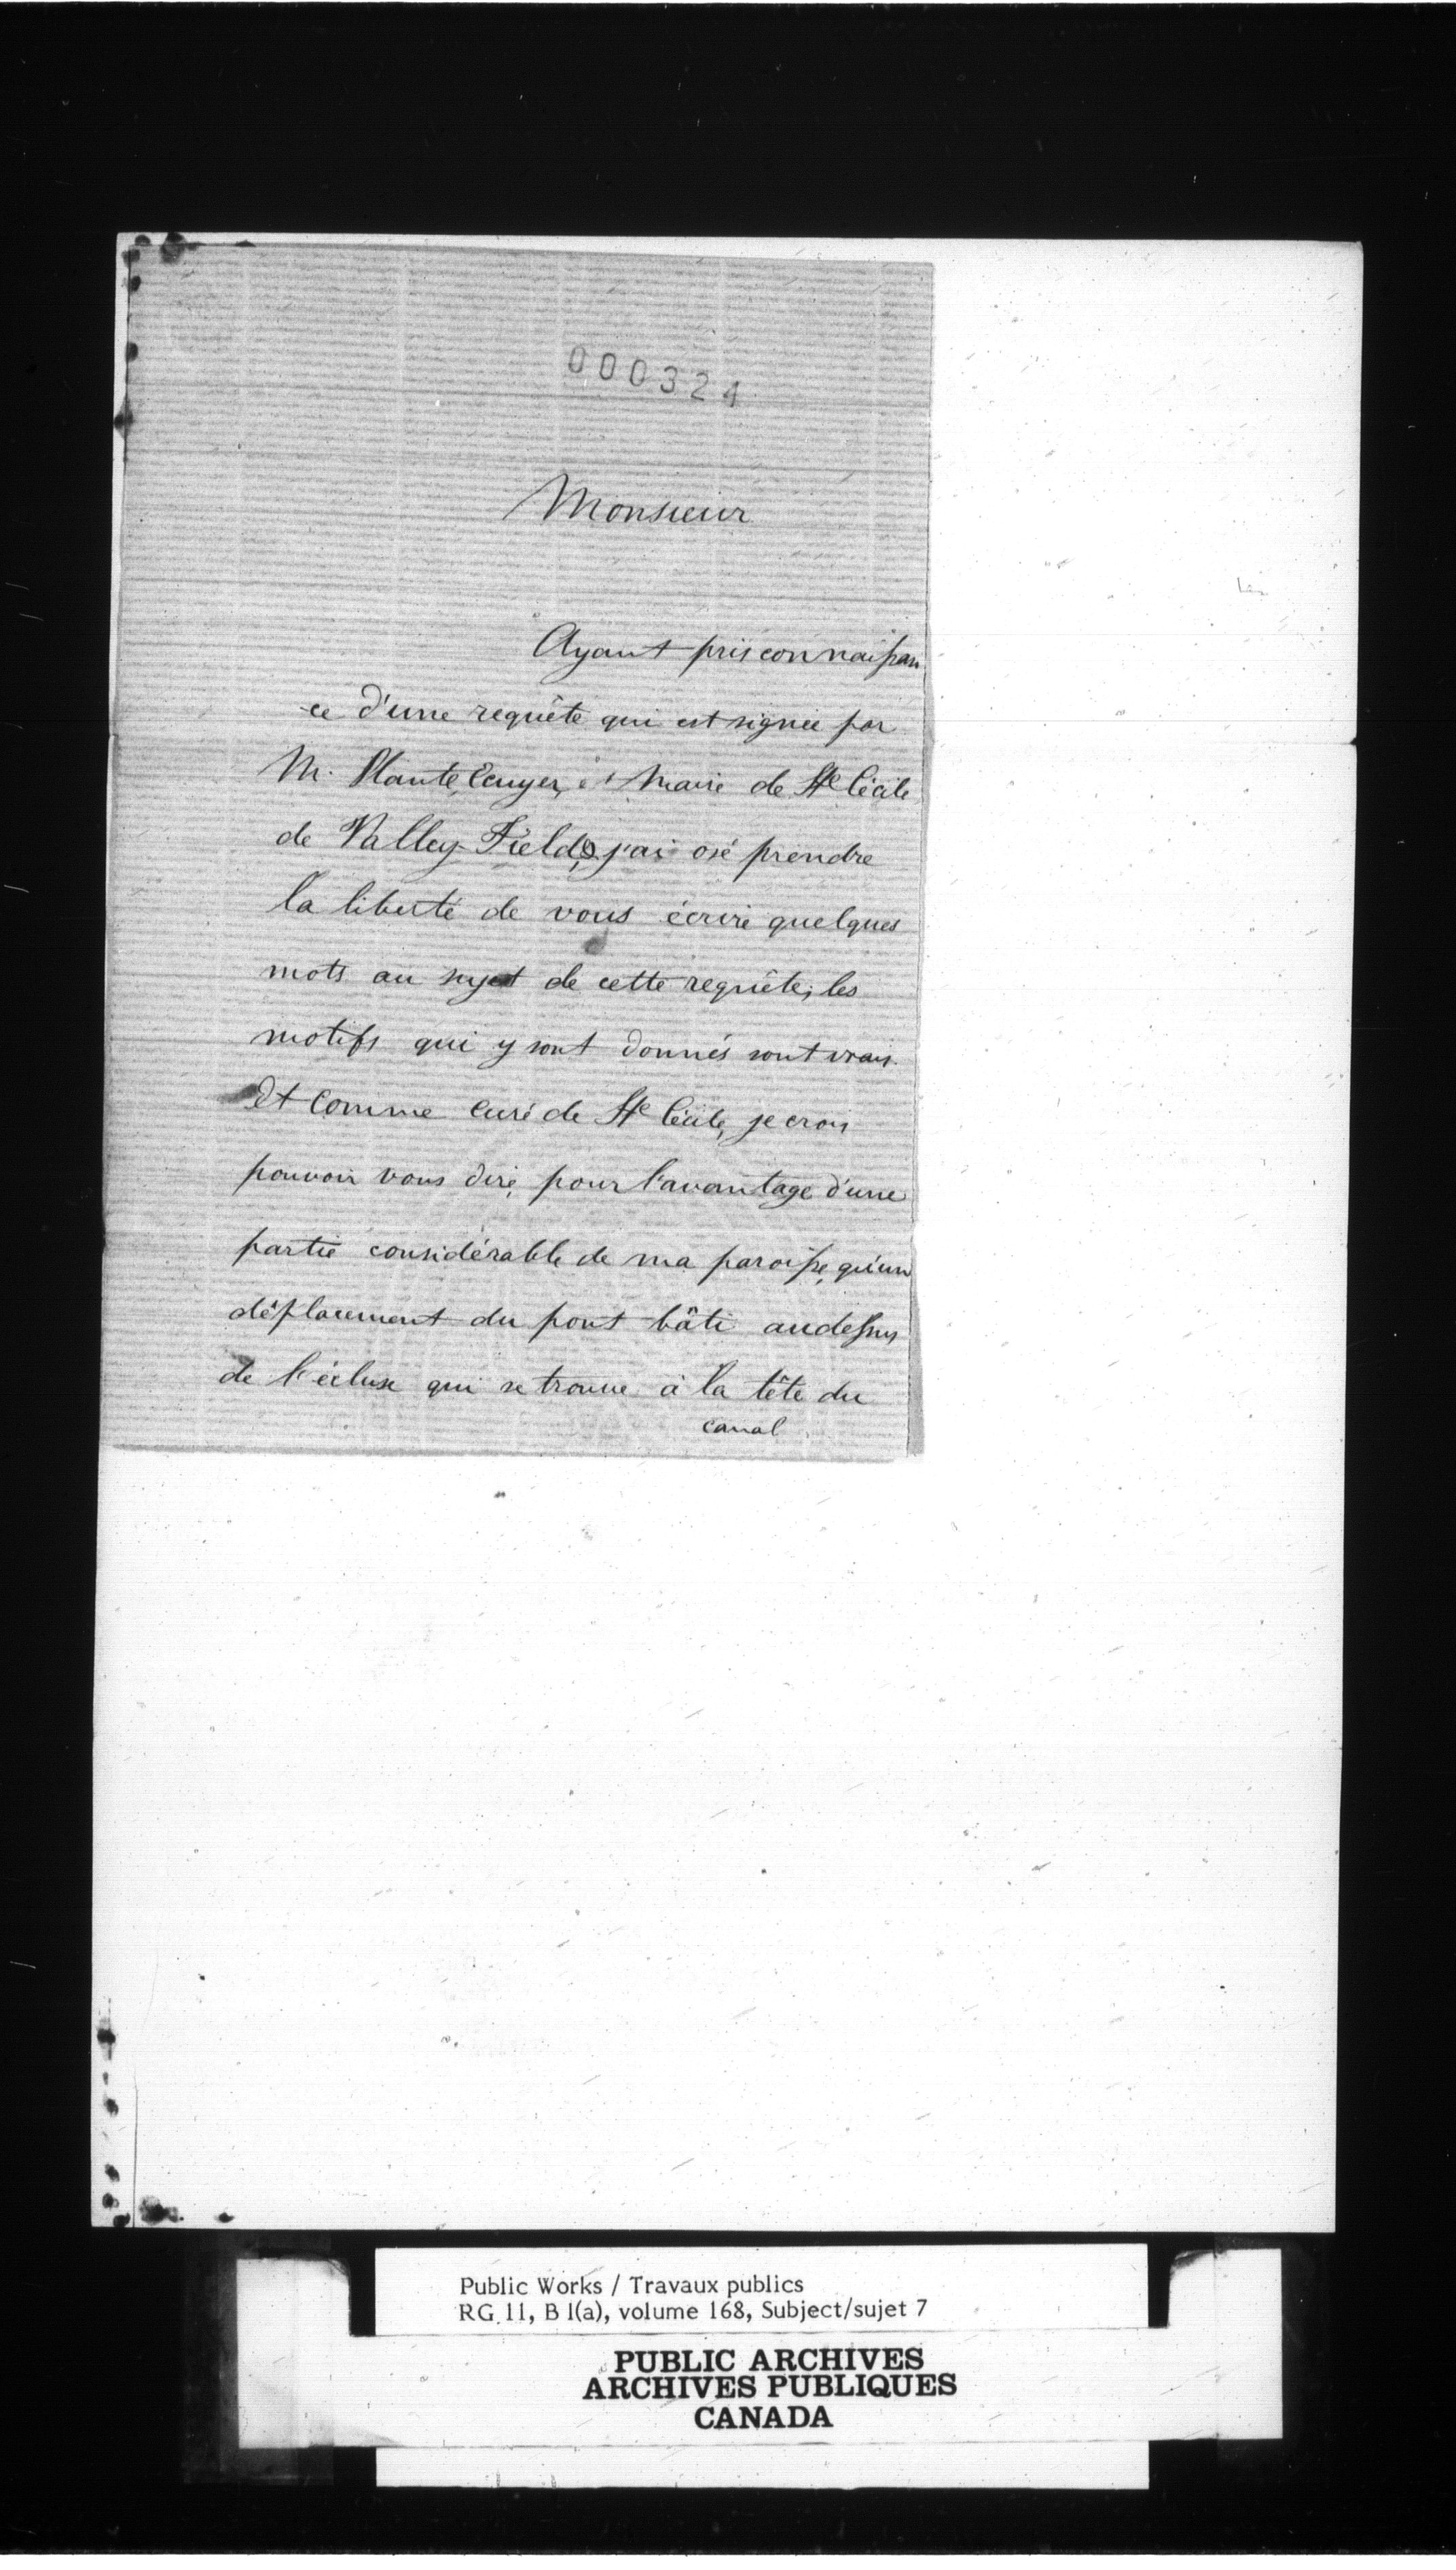 000324
Monsieur
Ayant pris connaissan
ce d'une requête qui est signée par
M. Plante, Ecuyer, et Maire de Ste Cécile
de Valley-Field, j'ai osé prendre
la liberté de vous écrire quelques
mots au sujet de cette requête; les
motifs qui y sont donnés sont vrais.
Et comme curé de Ste Cécile, je crois
pouvoir vous dire, pour l'avantage d'une
partie considérable de ma paroisse, qu'un
déplacement du pont bâti audessus
de l'écluse qui se trouve à la tête du
canal
Public Works / Travaux publics
RG 11, B 1(a), volume 168, Subject/sujet 7
PUBLIC ARCHIVES
ARCHIVES PUBLIQUES
CANADA